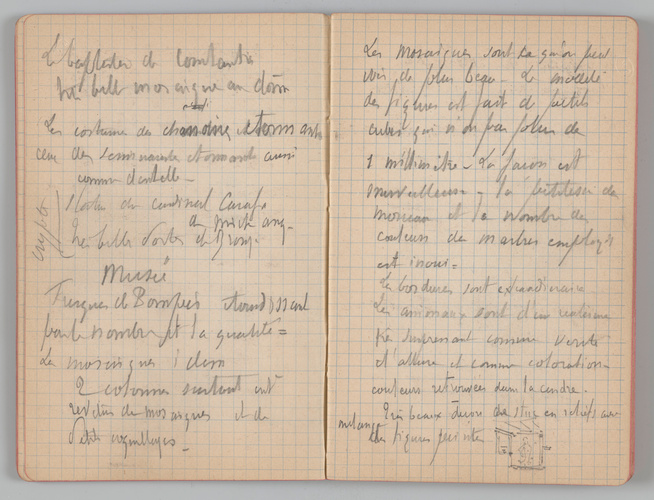 Le baptistère de Constantin
très belle mosaïque au dôme
Les costumes des chanoines étonnants
ceux des séminaristes étonnants aussi
comme dentelle -
crypte
statue du cardinal Carafa
de Mich ang -
très belle porte de Bronz -
Musée
Fresques de Pompéi étourdissant
par le nombre et la qualité =
Les mosaïques idem
2 colonnes surtout ont
revêtu de mosaïques et de
petits coquillages -
Les mosaïques sont ce qu'on peut
voir de plus beau - Le modelé
des figures est fait de petits
cubes qui n'ont pas plus de
1 millimètre - La façon est
merveilleuse - la petitesse des
morceaux et le nombre des
couleurs de marbres employés
est inoui =
Les bordures sont extraordinaires
Les animaux sont d'un réalisme
très surprenant comme vérité
d'allure et comme coloration -
couleurs retrouvées dans la cendre.
Très beaux décors de stuc en reliefs avec
mélange
des figures peintes